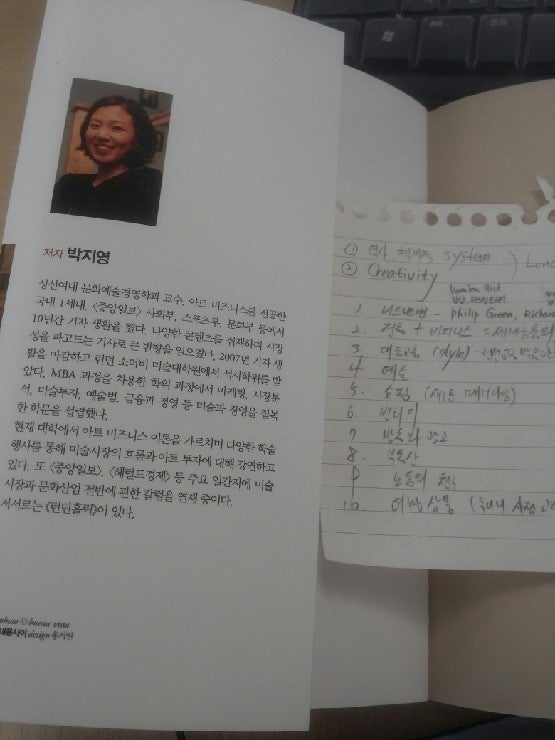 저자 박지영
성신여대 문화예술경영학과 교수. 아트 비즈니스를 전공한
국내 1세대. 《중앙일보》 사회부, 스포츠부, 문화부 등에서
10년간 기자 생활을 했다. 다양한 콘텐츠를 취재하며 시장
성을 파고드는 기사로 큰 반향을 일으켰다. 2007년 기자 생
활을 마감하고 런던 소더비 미술대학원에서 석사학위를 받
았다. MBA 과정을 차용한 학위 과정에서 마케팅, 시장분
석, 미술투자, 예술법, 금융과 경영 등 미술과 경영을 접목
한 학문을 섭렵했다.
현재 대학에서 아트 비즈니스 이론을 가르치며 다양한 학술
행사를 통해 미술시장의 흐름과 아트 투자에 대해 강연하고
있다. 또 《중앙일보》, 《헤럴드경제》 등 주요 일간지에 미술
시장과 문화산업 전반에 관한 칼럼을 연재 중이다.
저서로는 《런던홀릭》이 있다.
photo © buena vista
design 홍지연
① 역사, system
② Creativity
Damien Hirst
1. 비즈니스맨 - Philip Green, Richard
2. 전통 + 비즈니스
3. (style)
4 예술
5. 쇼핑
6. 빈티지
7
8. 부동산
9
10. 여행상품